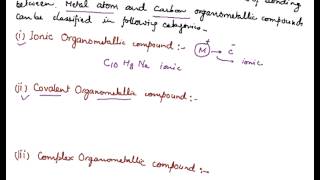 of bonding
between Metal atom and Carbon organometallic compound
can be classified in following categories -
(i) Ionic Organometallic compound :- M+ C-
C10 H8 Na ionic ionic
(ii) Covalent Organometallic compound :-
(iii) Complex Organometallic compound :-